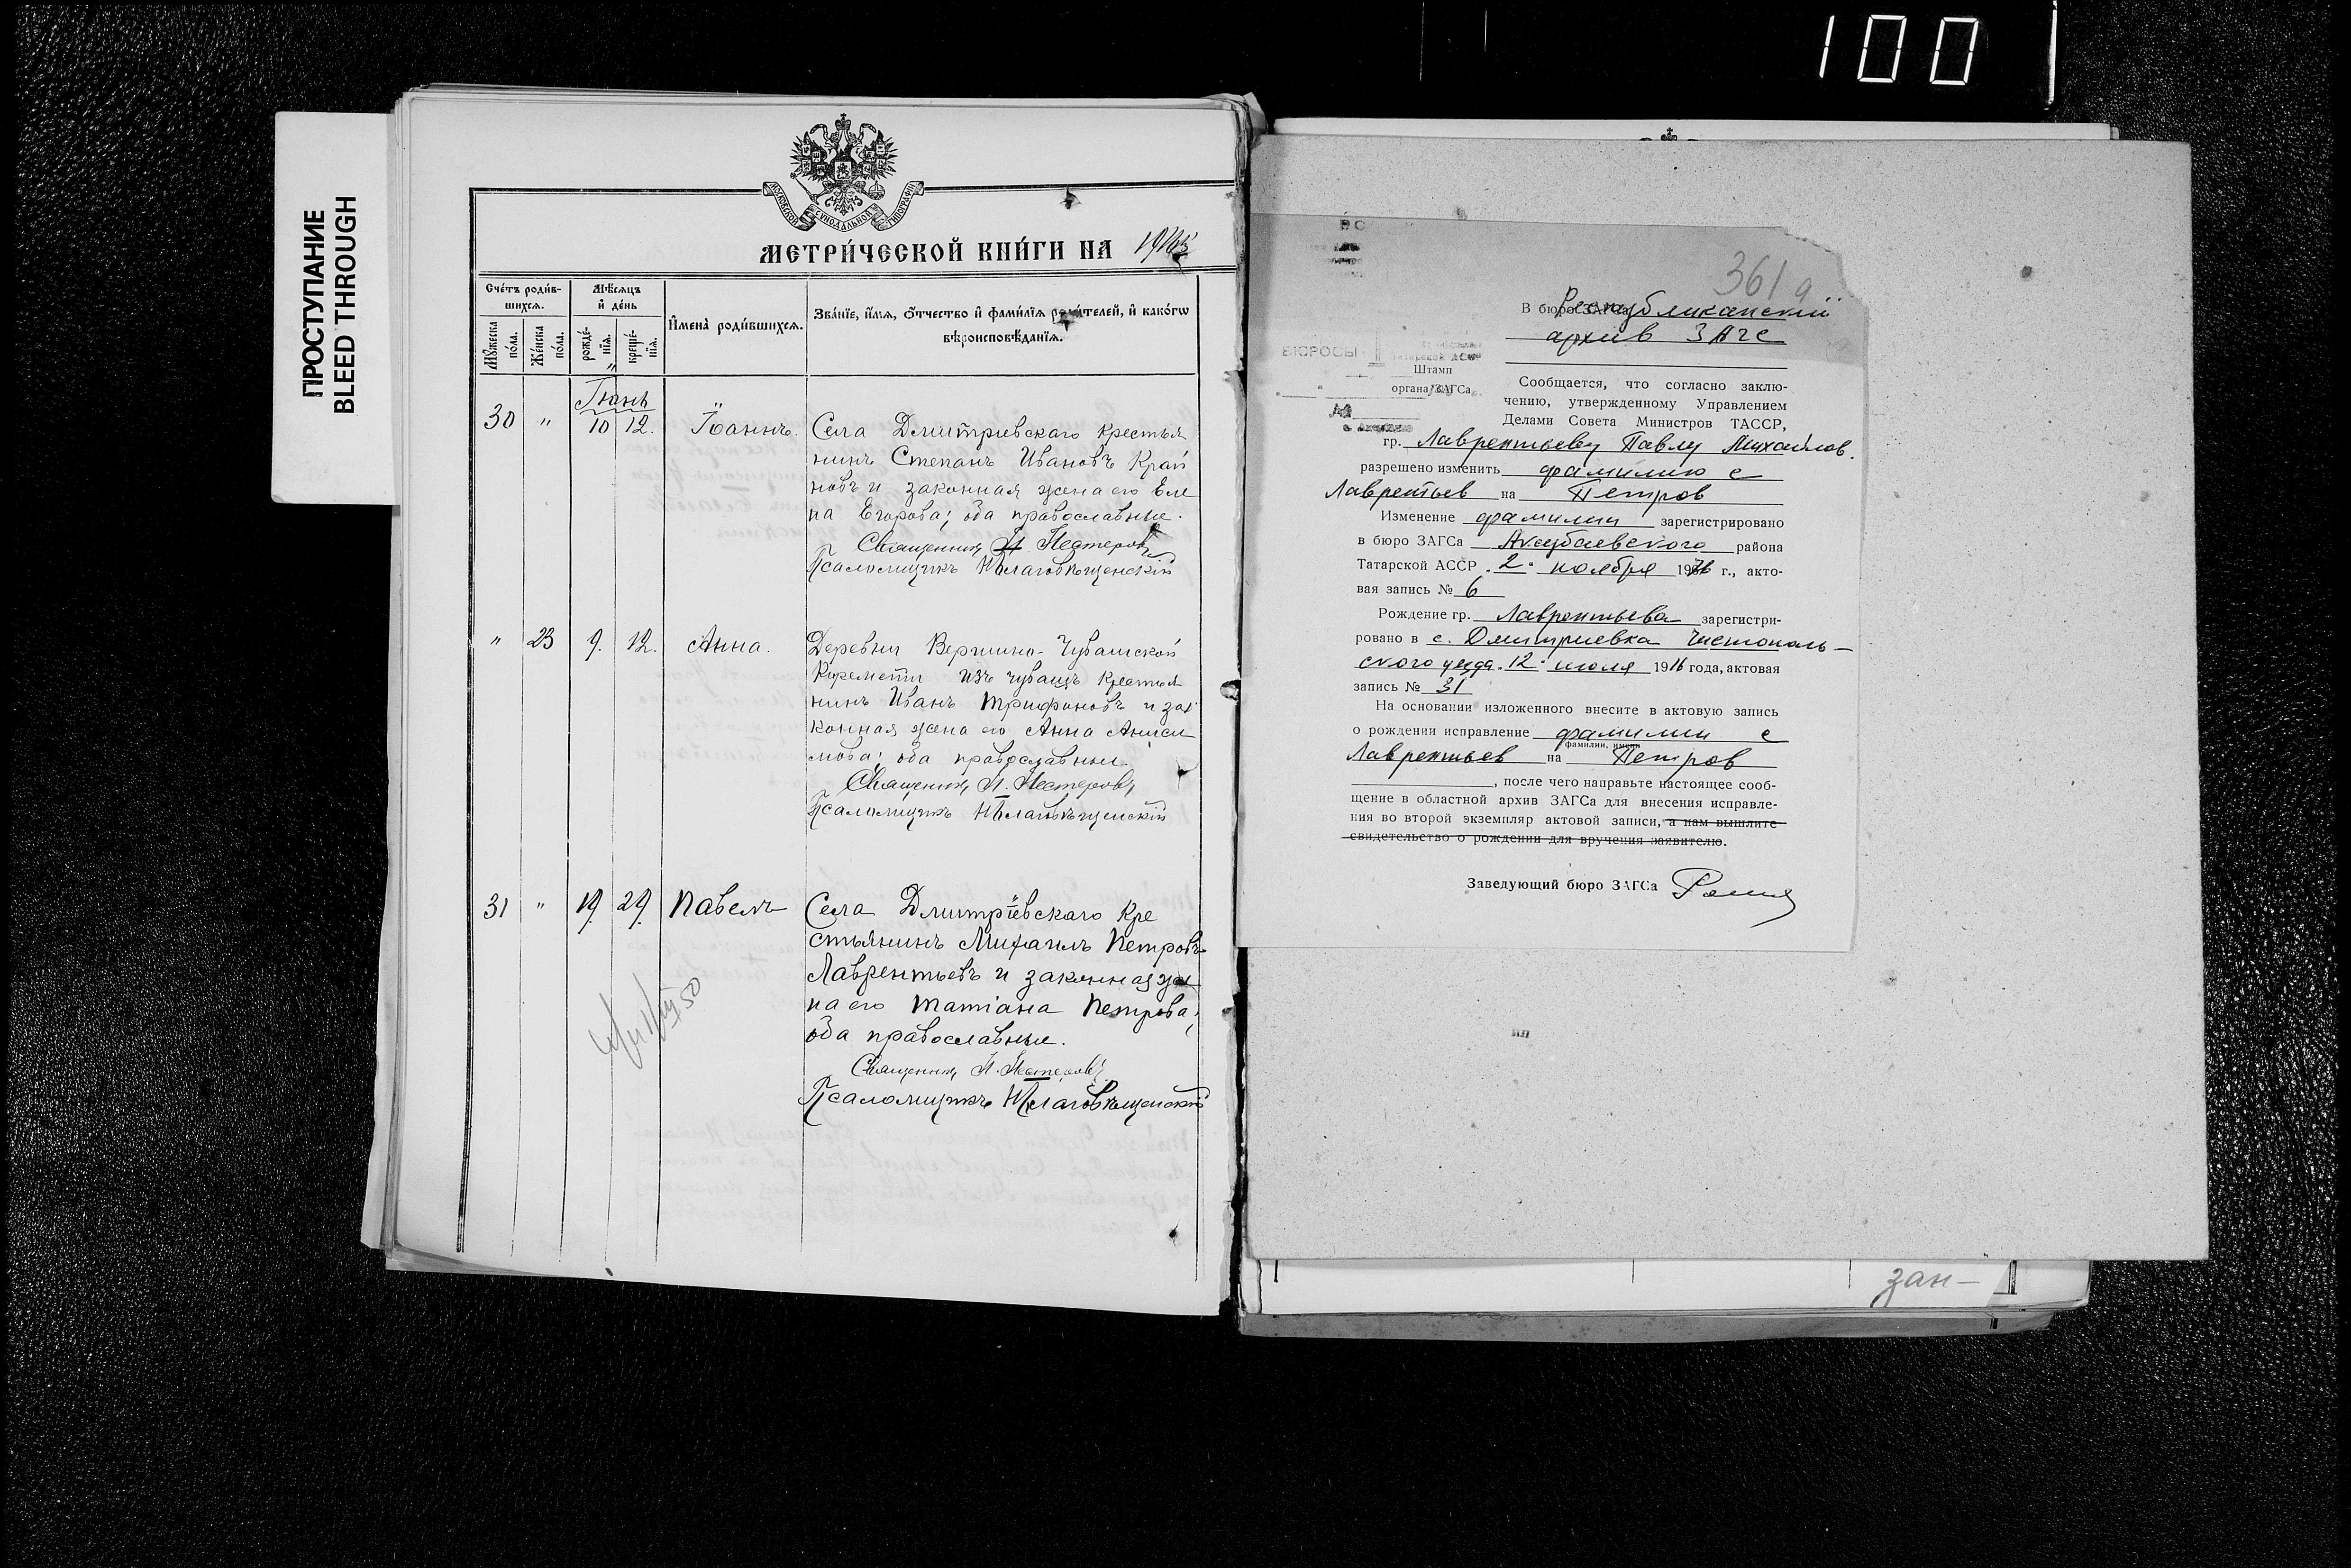 100
ПРОСТУПАНИЕ
BLEED THROUGH
МОСКОВСКОЙ СѴНОДАЛЬНОЙ ТИПОГРАФІИ
МЕТРИ́ЧЕСКОЙ КНИ́ГИ НА
Сче́тъ роди́в-
шихся.
Мꙋжеска по́ла.
Же́нска по́ла.
Мѣ́сяцъ
и де́нь
рожде́-
нїя.
креще́-
нїя.
Имена̀ роди́вшихся.
Зва́нїе, и́мя, о́тчество и фами́лїя роди́телей, и како́гѡ
вѣроисповѣ́данїя.
Іюнь
30 " 10 12. Іоаннъ. Села Дмитріевскаго крестья
нинъ Степанъ Ивановъ Край
новъ и законная жена его Еле
на Егорова; оба православные.
Священникъ Н. Нестеровъ
Псаломщикъ Н. Благовѣщенскій
" 23 9. 12. Анна. Деревни Вершино-Чувашской
Киремети изъ чувашъ крестья
нинъ Иванъ Трифоновъ и за
конная жена его Анна Аниси
мова; оба православные.
Священникъ Н. Нестеровъ
Псаломщикъ Н. Благовѣщенскій
31 " 19. 29. Павелъ Села Дмитріевскаго кре
стьянинъ Михаилъ Петровъ
Лаврентьевъ и законная же
на его Татіана Петрова;
оба православные.
Священникъ Н. Нестеровъ
Псаломщикъ Н. Благовѣщенскій
361 а
В бюро ЗАГСа Республиканский
архив ЗАГС
Штамп
органа ЗАГСа
Сообщается, что согласно заклю-
чению, утвержденному Управлением
Делами Совета Министров ТАССР,
гр. Лаврентьеву Павлу Михайлов.
разрешено изменить фамилию с
Лаврентьев на Петров
Изменение фамилии зарегистрировано
в бюро ЗАГСа Аксубаевского района
Татарской АССР „2" ноября 1976 г., акто-
вая запись № 6
Рождение гр. Лаврентьева зарегистри-
ровано в с. Дмитриевка Чистополь-
ского уезда „12" июля 1916 года, актовая
запись № 31
На основании изложенного внесите в актовую запись
о рождения исправление фамилии с
фамилии, имени
Лаврентьев на Петров
, после чего направьте настоящее сооб-
щение в областной архив ЗАГСа для внесения исправле-
ния во второй экземпляр актовой записи, а нам вышлите
свидетельство о рождении для вручения заявителю.
Заведующий бюро ЗАГСа
зан-